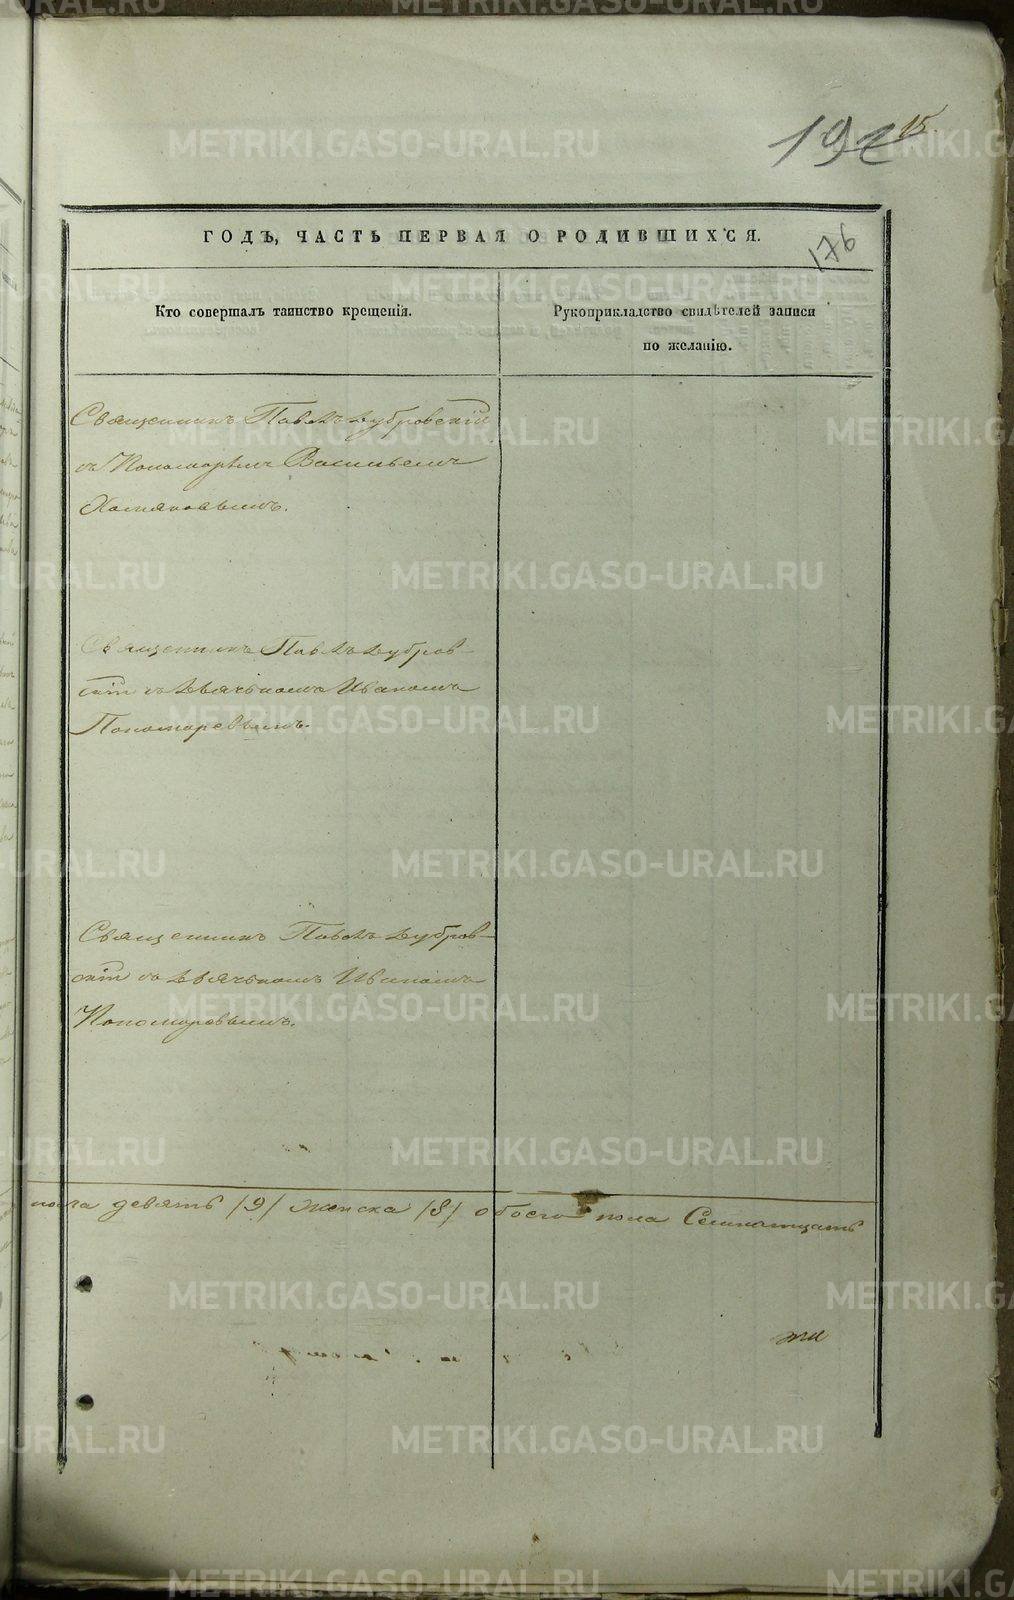 192
15.
ГОДЪ, ЧАСТЬ ПЕРВАЯ О РОДИВШИХСЯ.
176
Кто совершалъ таинство крещенія.
Рукоприкладство свидѣтелей записи
по желанію.
Священникъ Павелъ Дубровскій
съ Пономаремъ Васильемъ
Хомяковымъ.
Священникъ Павелъ Дубров-
скій съ Дьячкомъ Иваномъ
Пономаревымъ.
Священникъ Павелъ Дубров-
скій съ Дьячкомъ Иваномъ
Пономаревымъ.
пола девять /9/ женска /8/ обоего пола Семнатцать
METRIKI.GASO-URAL.RU